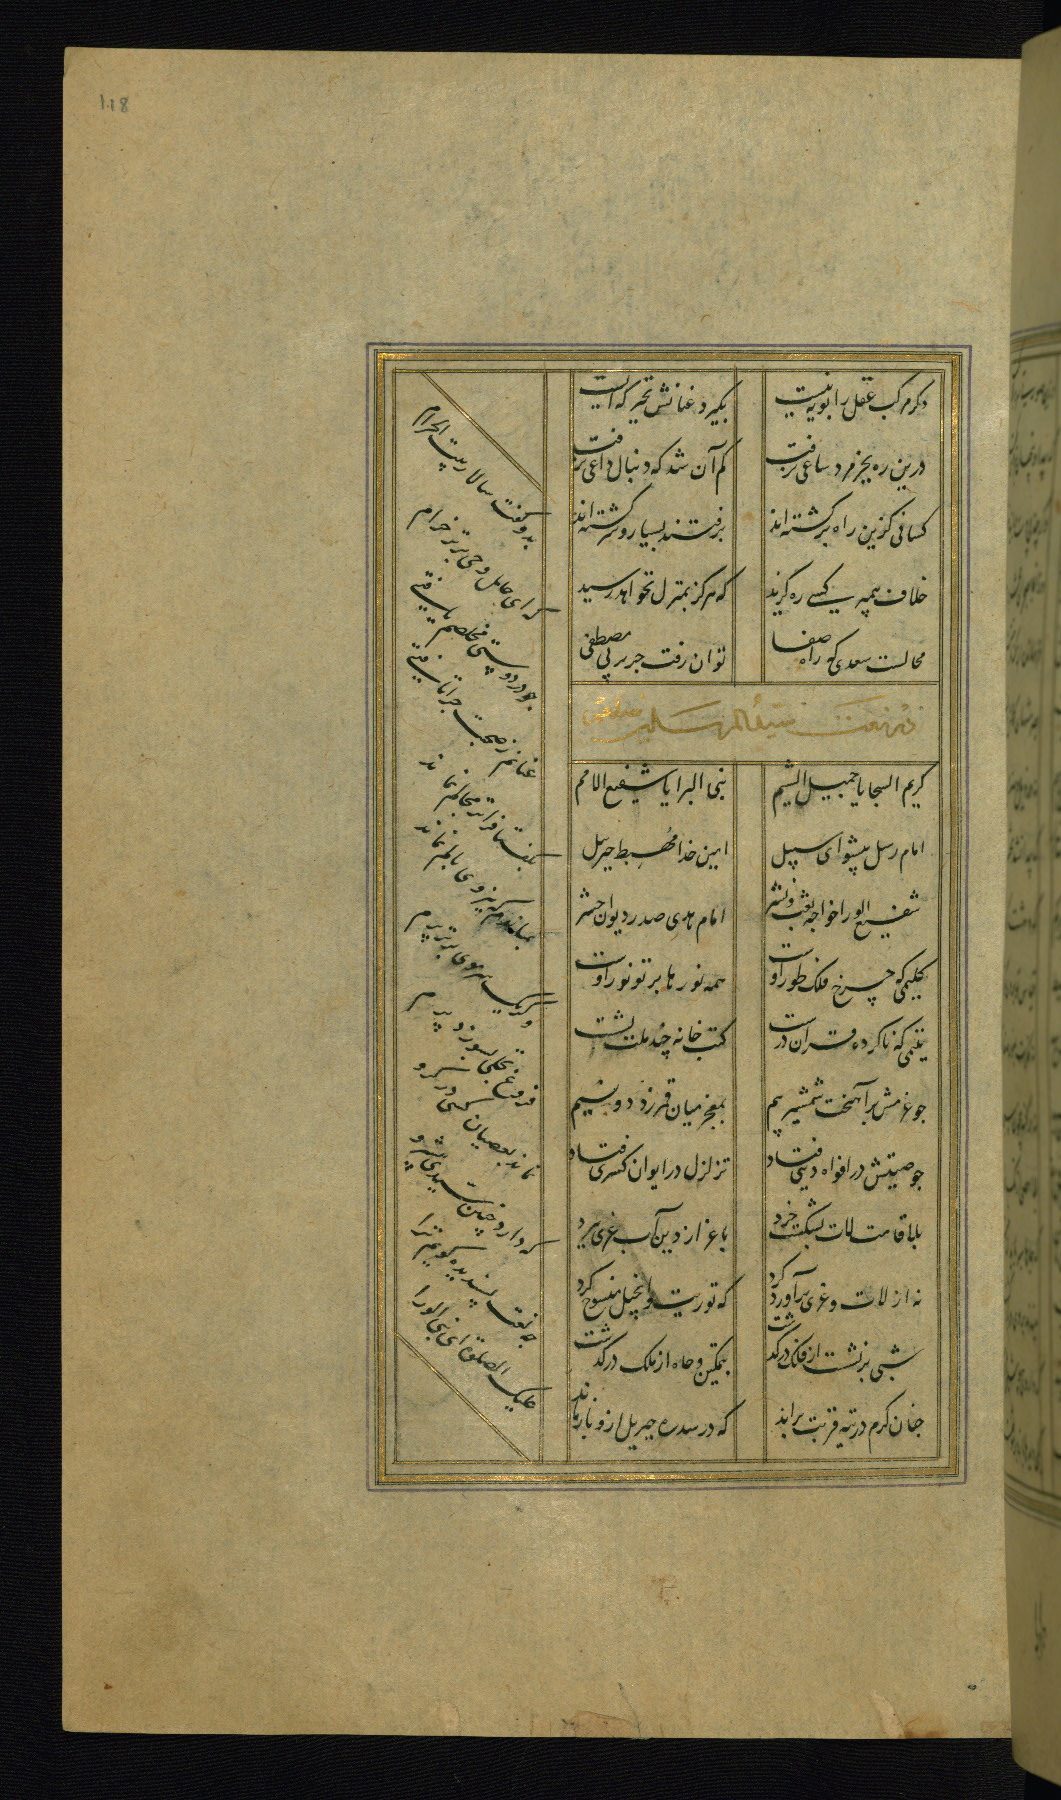 118
دگر مرکب عقل را پویه نیست
بگیرد عنانش تحیر که ایست
درین ره بجز مرد ساعی نرفت
کم آن شد که دنبال داعی نرفت
کسانی کزین راه برگشته‌اند
برفتند بسیار و سرگشته‌اند
خلاف پیمبر کسی ره گزید
که هرگز بمنزل نخواهد رسید
محالست سعدی که راه صفا
توان رفت جز بر پی مصطفی
در نعت سید المرسلین
کریم السجایا جمیل الشیم
نبی البرایا شفیع الامم
امام رسل پیشوای سبیل
امین خدا مهبط جبرئیل
شفیع الورا خواجه بعث و نشر
امام هدی صدر دیوان حشر
کلیمی که چرخ فلک طور اوست
همه نورها پرتو نور اوست
یتیمی که ناکرده قرآن درست
کتب خانه چند ملت بشست
چو عزمش برآهیخت شمشیر بیم
بمعجز میان قمر زد دو نیم
چو صیتش در افواه دینی فتاد
تزلزل در ایوان کسری فتاد
بلا قامت لات بشکست خرد
باعزاز دین آب عزی ببرد
نه از لات و عزی برآورد گرد
که توریت و انجیل منسوخ کرد
شبی برنشست از فلک درگذشت
بتمکین و جاه از ملک درگذشت
چنان گرم در تیه قربت براند
که در سدره جبریل ازو باز ماند
بدو گفت سالار بیت الحرام
که ای حامل وحی برتر خرام
چو در دوستی مخلصم یافتی
عنانم ز صحبت چرا تافتی
بگفتا فراتر مجالم نماند
بماندم که نیروی بالم نماند
اگر یک سر موی برتر پرم
فروغ تجلی بسوزد پرم
نماند بعصیان کسی در گرو
که دارد چنین سیدی پیشرو
چه نعت پسندیده گویم ترا
علیک الصلوة ای نبی الورا